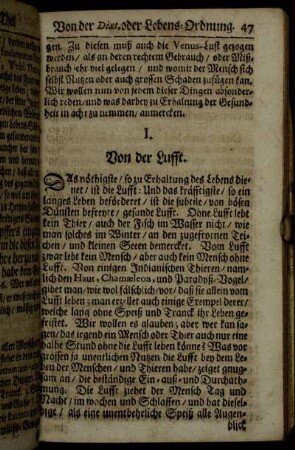 Von der Diæt, oder Lebens-Ordnung. 47
gen. Zu diesen muß auch die Venus-Lust gezogen
werden / als an deren rechtem Gebrauch / oder Miß-
brauch sehr viel gelegen / und womit der Mensch sich
selbst Nutzen oder auch grossen Schaden zufügen kan.
Wir wollen nun von jedem dieser Dingen absonder-
lich reden / und was darbey zu Erhaltung der Gesund-
heit in acht zu nehmen / anmercken.
I.
Von der Lufft.
DAs nöthigste / so zu Erhaltung des Lebens die-
net / ist die Lufft: Und das kräfftigste / so ein
langes Leben befördert / ist die subtile / von bösen
Dünsten befreyte / gesunde Lufft. Ohne Lufft lebt
kein Thier / auch der Fisch im Wasser nicht / wie
man solches im Winter / an den zugefrornen Tei-
chen / und kleinen Seen bemercket. Vom Lufft
zwar lebt kein Mensch / aber auch kein Mensch ohne
Lufft. Von einigen Indianischen Thieren / nam-
lich den Haut, Chamæleon, und Paradyß-Vogel /
gibet man wie wol fälschlich / vor / daß sie allein vom
Lufft leben; man erzehlet auch einige Exempel derer /
welche lang ohne Speiß und Tranck ihr Leben ge-
fristet. Wir wollen es glauben; aber wer kan sa-
gen / das irgend ein Mensch oder Thier auch nur eine
halbe Stund ohne die Lufft leben könne? Was vor
grossen ja unentlichen Nutzen die Lufft bey dem Le-
ben der Menschen / und Thieren habe / zeiget gnug-
sam an / die beständige Ein- auß- und Durchath-
mung. Die Lufft ziehet der Mensch Tag und
Nacht / im wachen und Schlaffen / und hat diesel-
bige / als eine unentbehrliche Speiß alle Augen-
blick